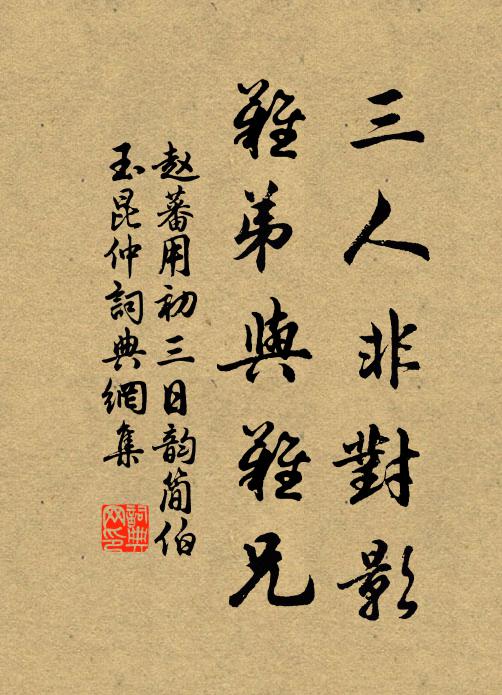 三人非對影
難弟與難兄
赵蕃用初三日韵简伯
玉昆仲詞典網集
詞典网印